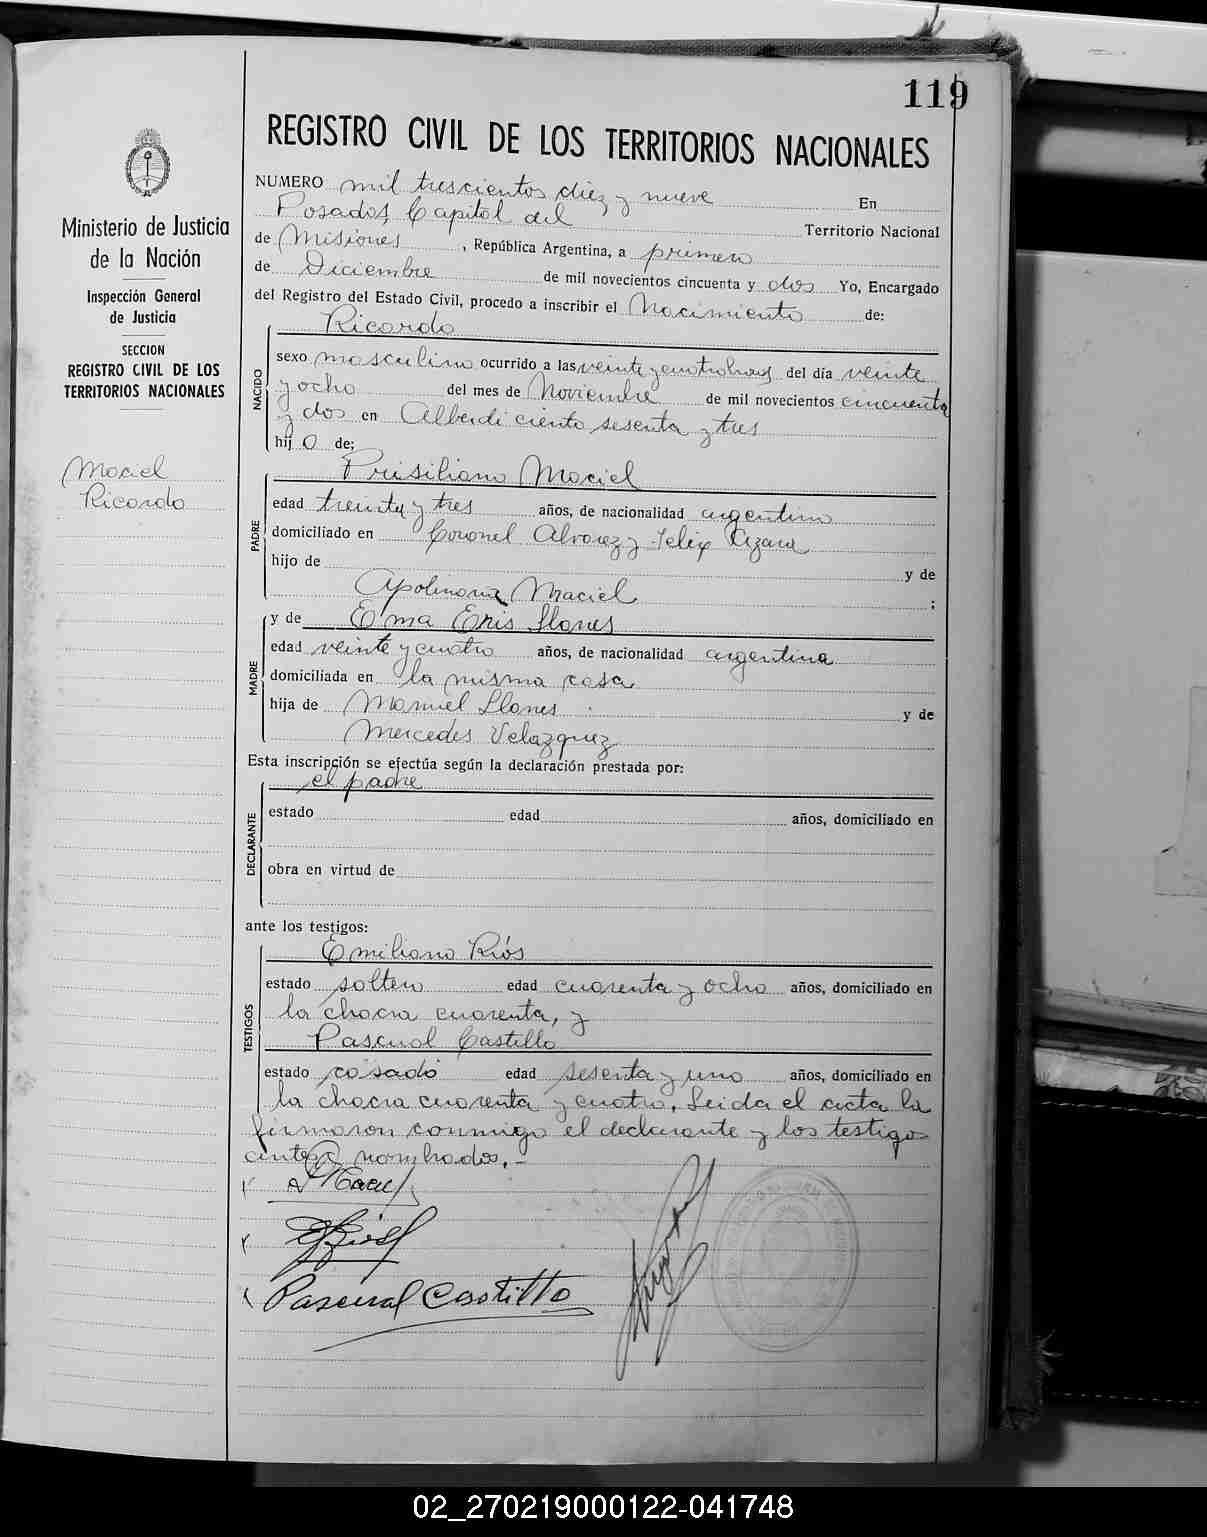 119
REGISTRO CIVIL DE LOS TERRITORIOS NACIONALES
Ministerio de Justicia
de la Nación
Inspección General
de Justicia
SECCION
REGISTRO CIVIL DE LOS
TERRITORIOS NACIONALES
Maciel
Ricardo
NUMERO mil trescientos diez y nueve En
Posadas, Capital del Territorio Nacional
de Misiones, República Argentina, a primero
de Diciembre de mil novecientos cincuenta y dos Yo, Encargado
del Registro del Estado Civil, procedo a inscribir el Nacimiento de:
Ricardo
NACIDO
sexo masculino ocurrido a las veinte y cuatro horas del día veinte
y ocho del mes de Noviembre de mil novecientos cincuenta
y dos en Alberdi ciento sesenta y tres
hijo de;
Prisiliano Maciel
PADRE
edad treinta y tres años, de nacionalidad argentino
domiciliado en Coronel Alvarez y Felix Azara
hijo de y de
Apolinaria Maciel ;
y de Ema Eris Llanes
MADRE
edad veinte y cuatro años, de nacionalidad argentina
domiciliada en la misma casa
hija de Manuel Llanes y de
Mercedes Velazquez
Esta inscripción se efectúa según la declaración prestada por:
el padre
DECLARANTE
estado edad años, domiciliado en
obra en virtud de
ante los testigos:
Emiliano Ríos
TESTIGOS
estado soltero edad cuarenta y ocho años, domiciliado en
la chacra cuarenta, y
Pascual Castillo
estado casado edad sesenta y uno años, domiciliado en
la chacra cuarenta y cuatro. Leida el acta la
firmaron conmigo el declarante y los testigos
antes nombrados.-
Pascual Castillo
02_270219000122-041748